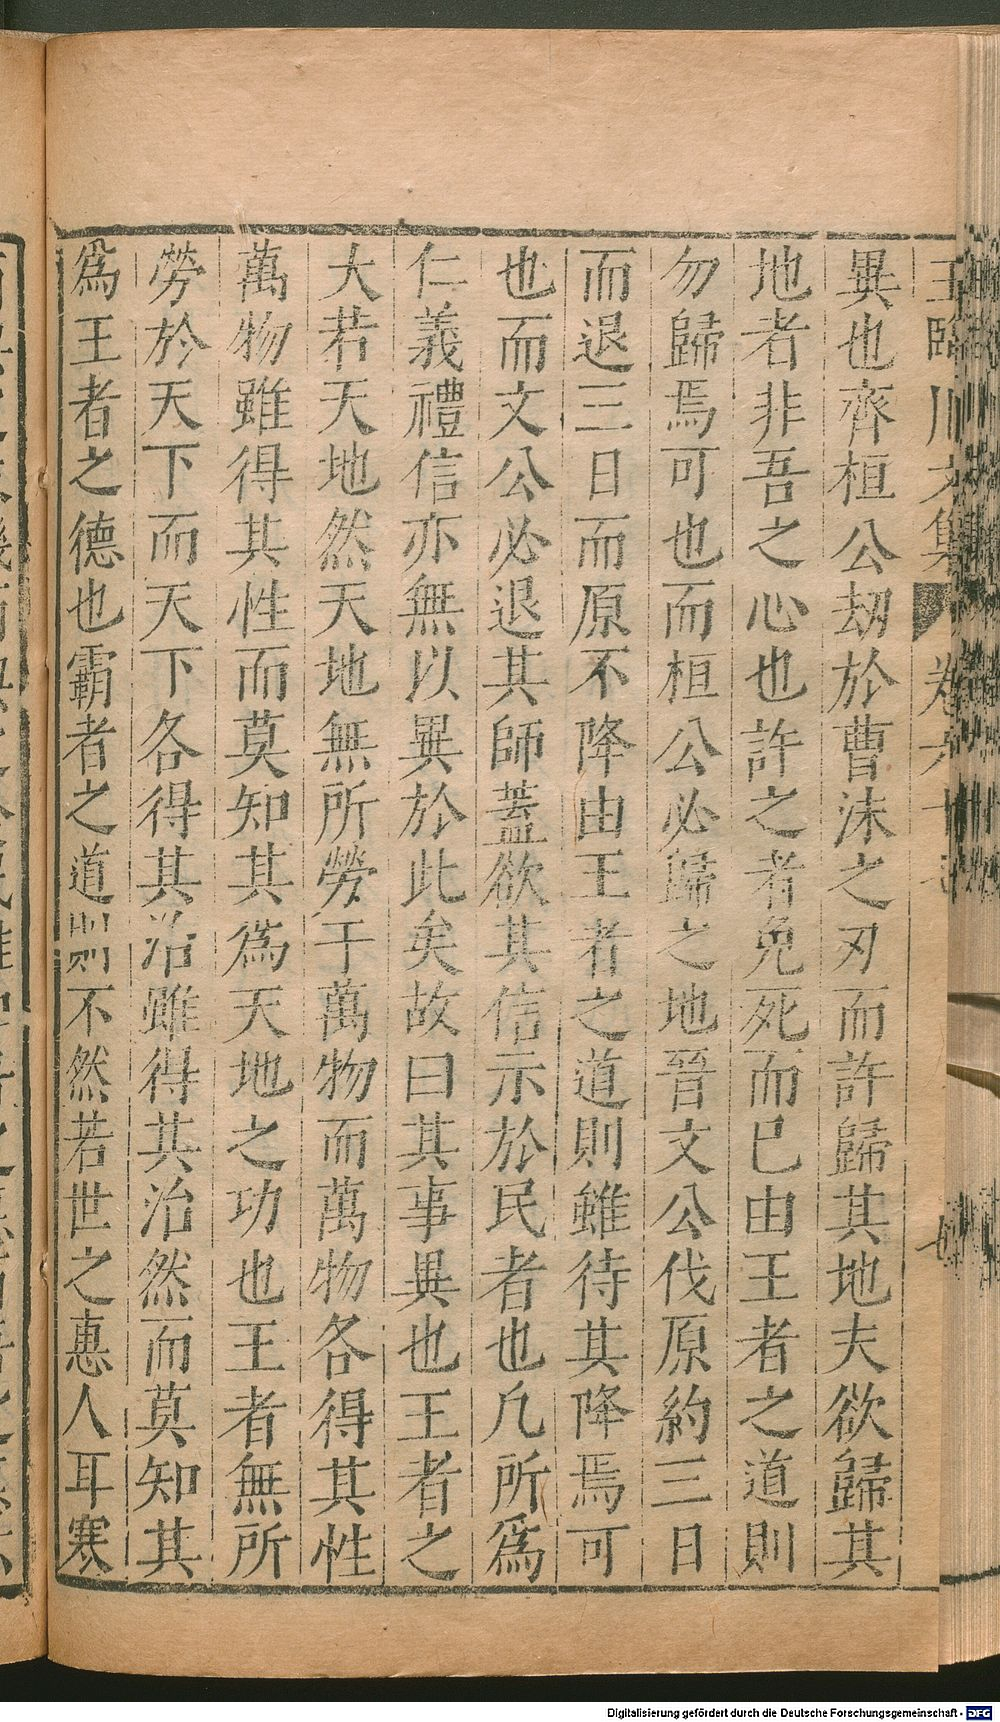 王臨川文集 卷六十七 七
異也齊桓公劫於曹沬之刃而許歸其地夫欲歸其
地者非吾之心也許之者免死而已由王者之道則
勿歸焉可也而桓公必歸之地晉文公伐原約三日
而退三日而原不降由王者之道則雖待其降焉可
也而文公必退其師蓋欲其信示於民者也凡所爲
仁義禮信亦無以異於此矣故曰其事異也王者之
大若天地然天地無所勞于萬物而萬物各得其性
萬物雖得其性而莫知其爲天地之功也王者無所
勞於天下而天下各得其治雖得其治然而莫知其
爲王者之德也霸者之道則不然若世之惠人耳寒
Digitalisierung gefördert durch die Deutsche Forschungsgemeinschaft - DFG